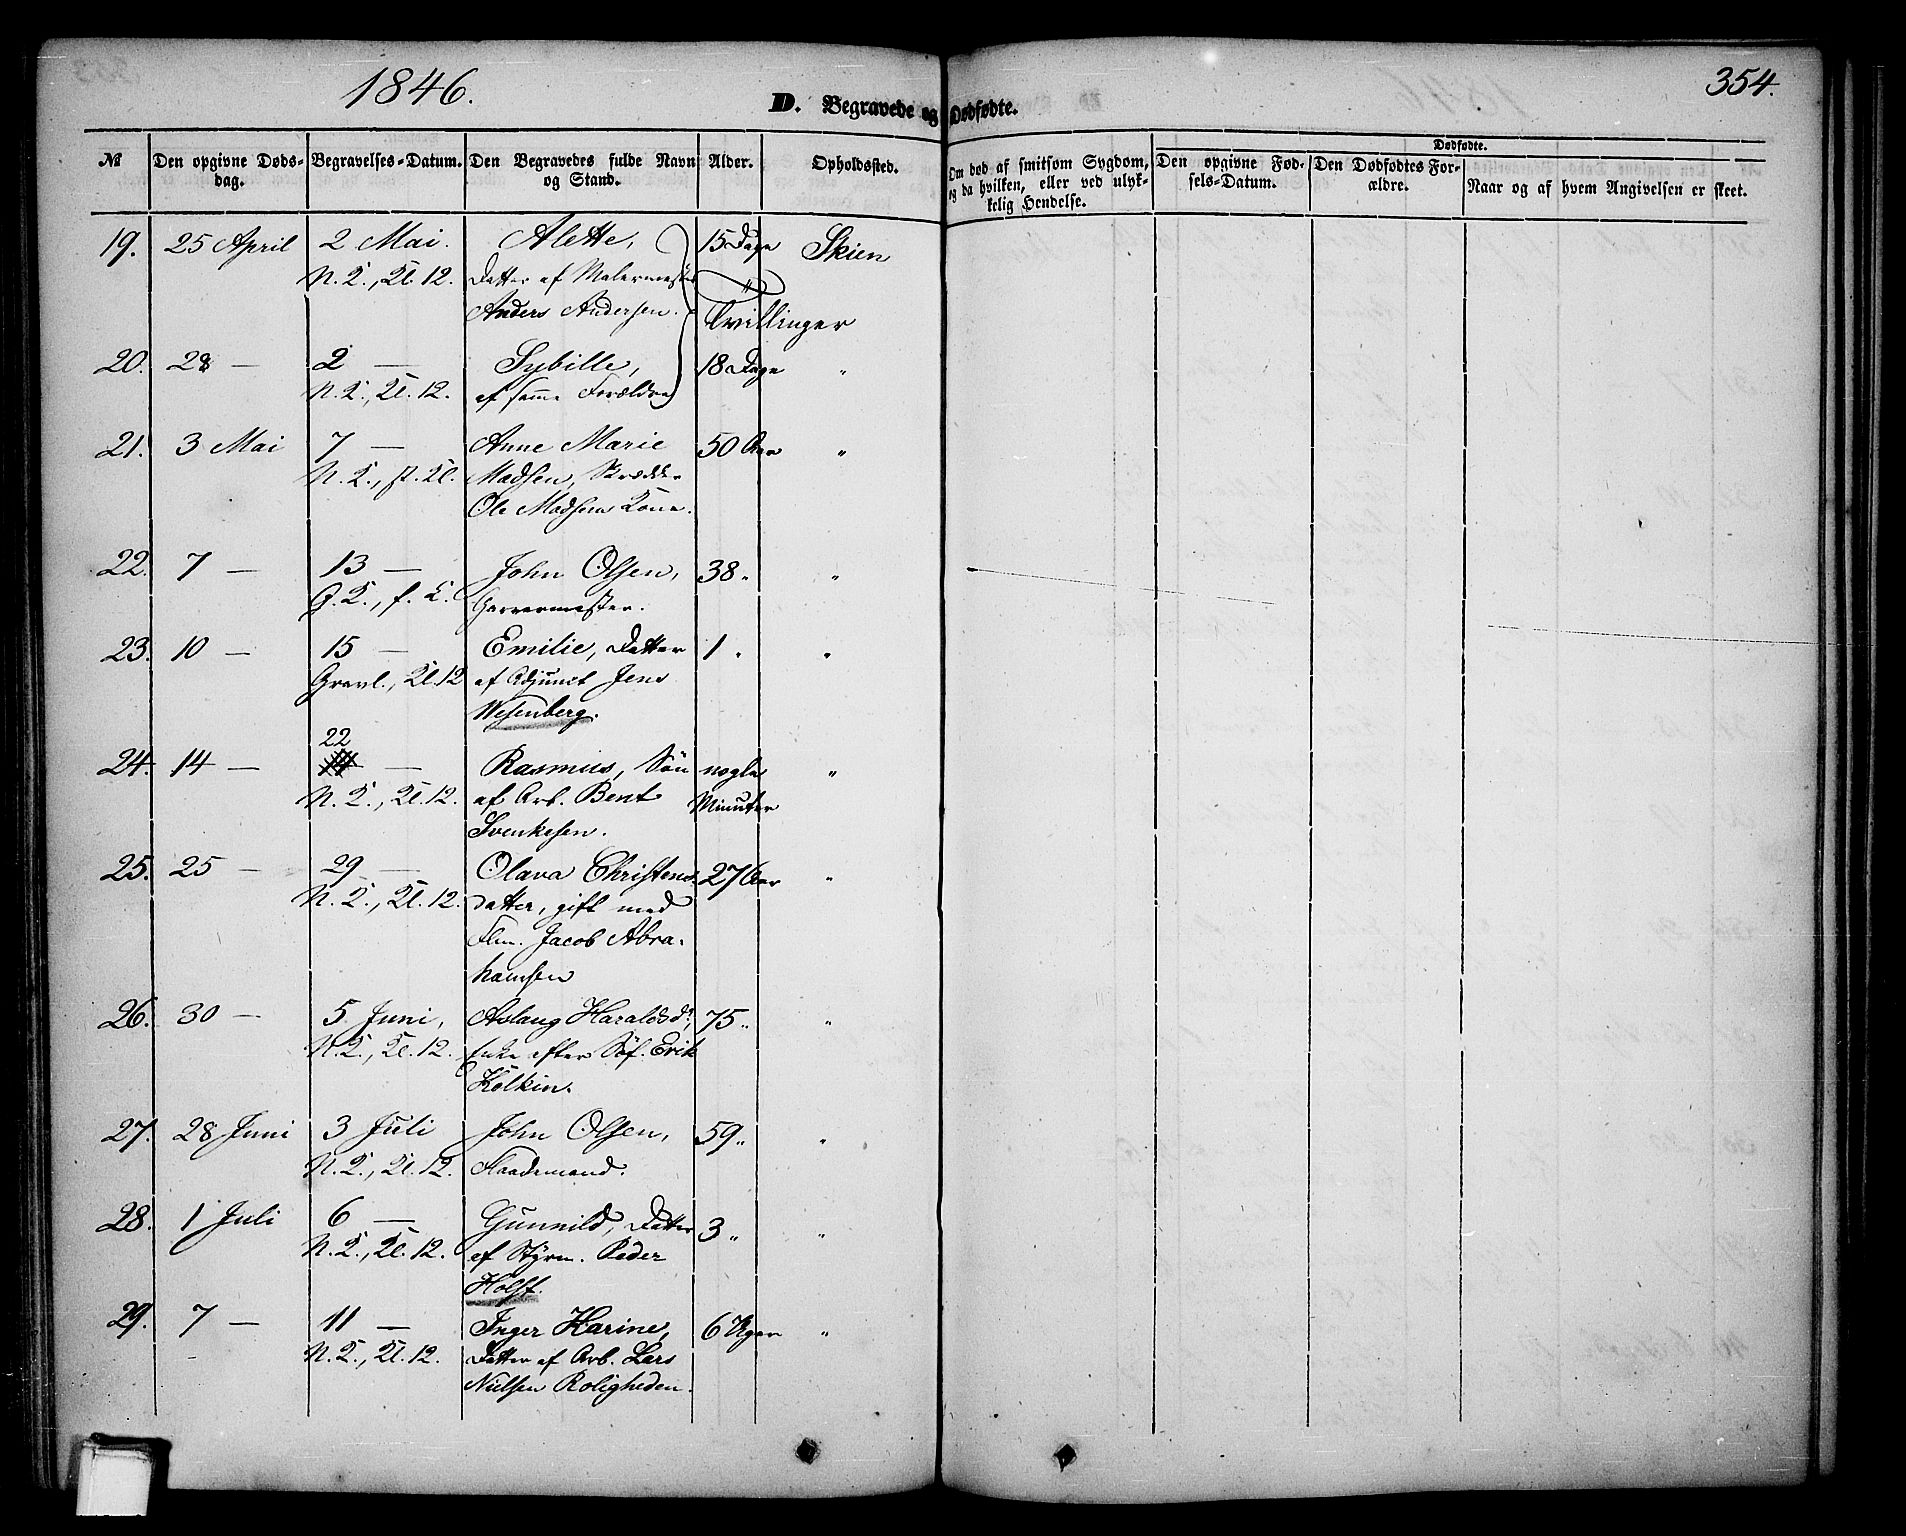 1846.
D. Begravede og Dødfødte.
354.
No
Den opgivne Døds-
dag.
Begravelses-Datum.
Den Begravedes fulde Navn
og Stand.
Alder.
Opholdssted.
Om død af smitsom Sygdom,
og da hvilken, eller ved ulyk-
kelig Hendelse.
Dødfødte.
Den opgivne Fød-
sels-Datum.
Den Dødfødtes For-
ældre.
Naar og af hvem Angivelsen er skeet.
19. 25 April 2 Mai. Alette, 15 Dage Skien
N. K., Kl. 12. Datter af Malermester "
Anders Andersen. Tvillinger
20. 28 — 2 — Sybille, 18 Dage "
N. K., Kl. 12. af samme Forældre
21. 3 Mai 7 — Anne Marie 50 Aar "
N. K., f. Kl. Madsen, Skrædder
Ole Madsens Kone.
22. 7 — 13 — John Olsen, 38 " "
G. K., f. K. Garvermester.
23. 10 — 15 — Emilie, Datter 1 " "
Gravl., Kl. 12 af Adjunct Jens
Wesenberg.
22
24. 14 — — Rasmus, Søn nogle "
N. K., Kl. 12. af Arb. Bent Minuter
Svenkesen.
25. 25 — 29 — Olava Christens- 27 Aar "
N. K., Kl. 12. datter, gift med
Flm. Jacob Abra-
hamsen
26. 30 — 5 Juni, Aslaug Haraldsdr, 75 " "
N. K., Kl. 12. Enke efter Søf. Erik
Kolkin.
27. 28 Juni 3 Juli John Olsen, 59 " "
N. K., Kl. 12. Flaademand.
28. 1 Juli 6 — Gunnild, Datter 3 " "
N. K., Kl. 12. af Styrm. Peder
Holst.
29. 7 — 11 — Inger Karine, 6 Uger "
N. K., Kl. 12. Datter af Arb. Lars
Nielsen Roligheden.